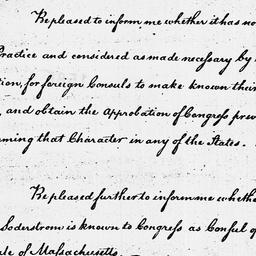 Be pleased to inform me whether it has no
Practice and considered as made necessary by
tion, for foreign Consuls to make known their
, and obtain the Approbation of Congress prev
uming that Character in any of the States.
Be pleased further to inform me whethe
Soderstrom is known to Congress as Consul of
ate of Massachusetts.